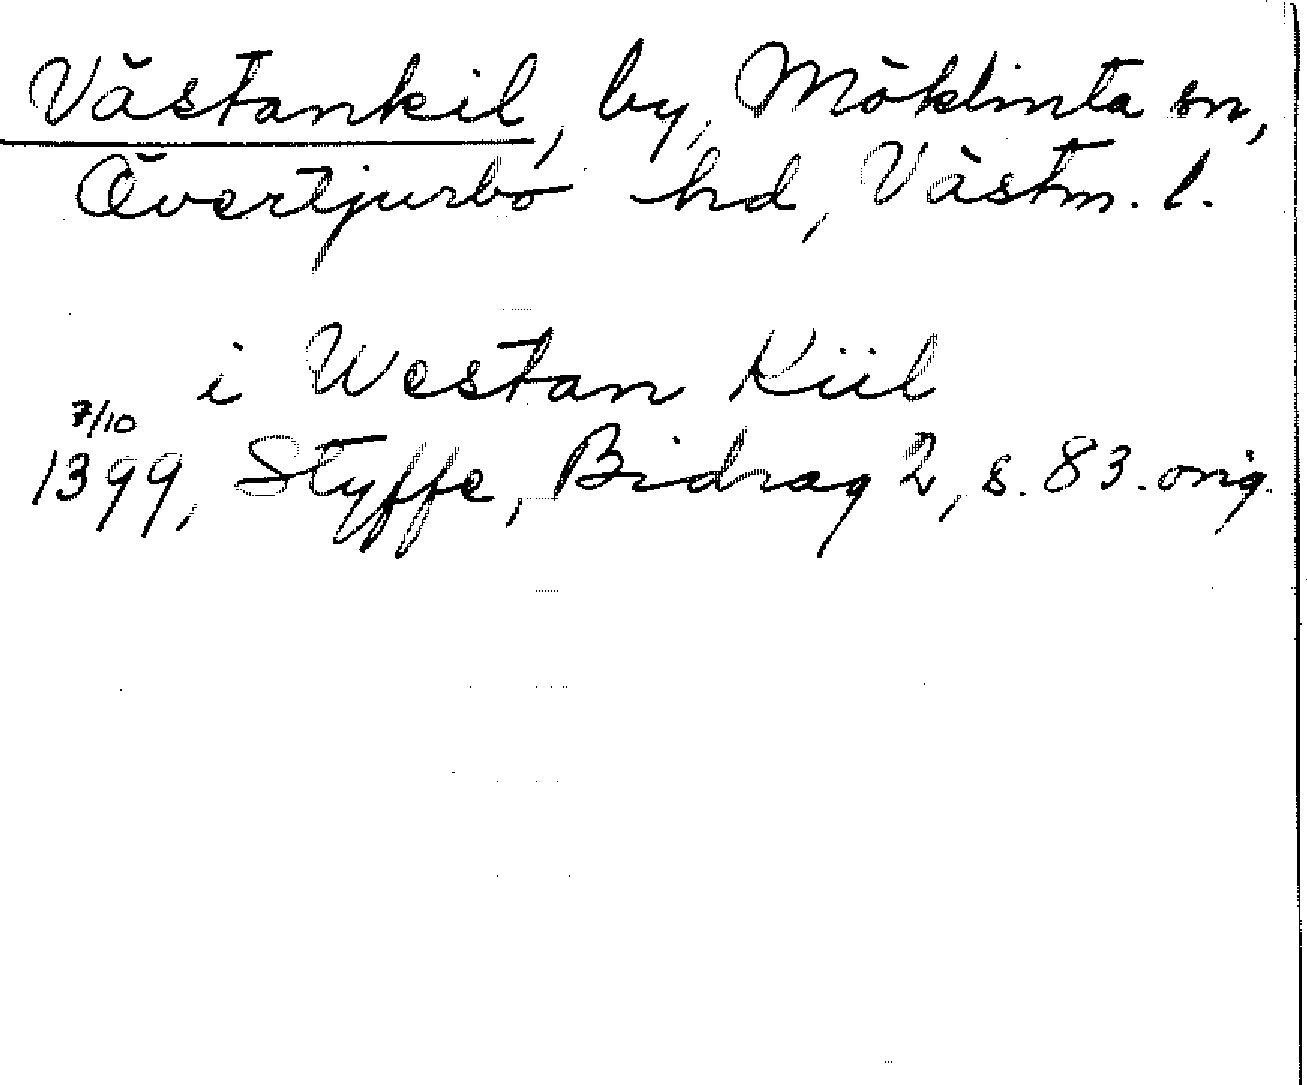 Västankil, by, Möklinta sn,
Övertjurbo hd, Västm. l.
i Westan Kiil
7/10
1399, Styffe, Bidrag 2, s. 83. orig.